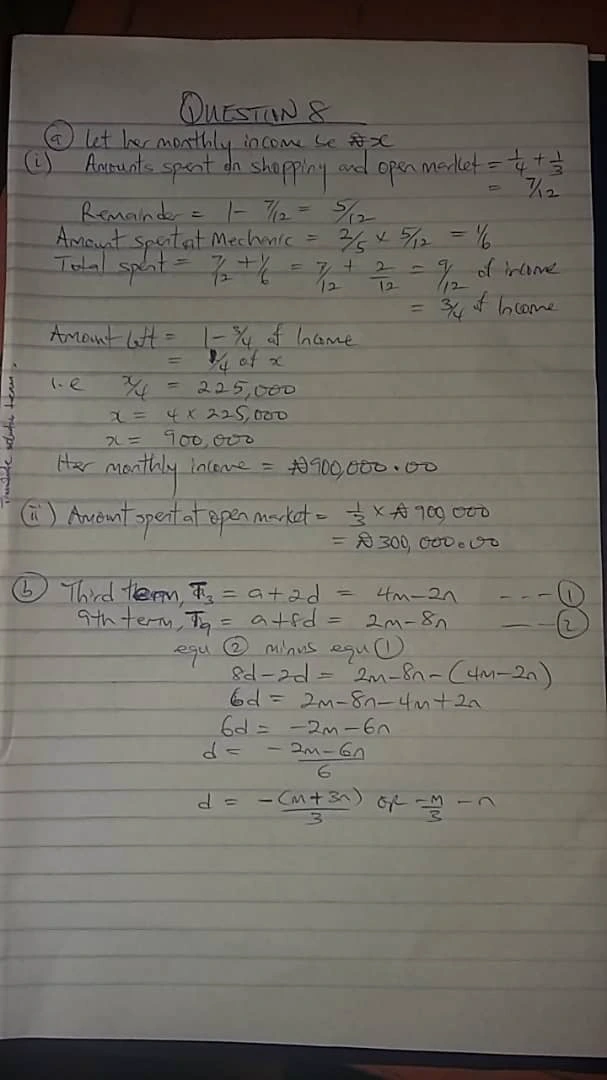 QUESTION 8
(a) Let her monthly income be ₦x
(i) Amounts spent on shopping and open market = 1/4 + 1/3
= 7/12
Remainder = 1 - 7/12 = 5/12
Amount spent at Mechanic = 2/5 x 5/12 = 1/6
Total spent = 7/12 + 1/6 = 7/12 + 2/12 = 9/12 of income
= 3/4 of Income
Amount left = 1 - 3/4 of Income
= 1/4 of x
i.e x/4 = 225,000
x = 4 x 225,000
x = 900,000
Her monthly income = ₦900,000.00
(ii) Amount spent at open market = 1/3 x ₦900,000
= ₦300,000.00
(b) Third term, T₃ = a+2d = 4m-2n --- (1)
9th term, T₉ = a+8d = 2m-8n --- (2)
equ (2) minus equ (1)
8d-2d = 2m-8n-(4m-2n)
6d = 2m-8n-4m+2n
6d = -2m-6n
d = -2m-6n/6
d = -(m+3n)/3 or -m/3 - n